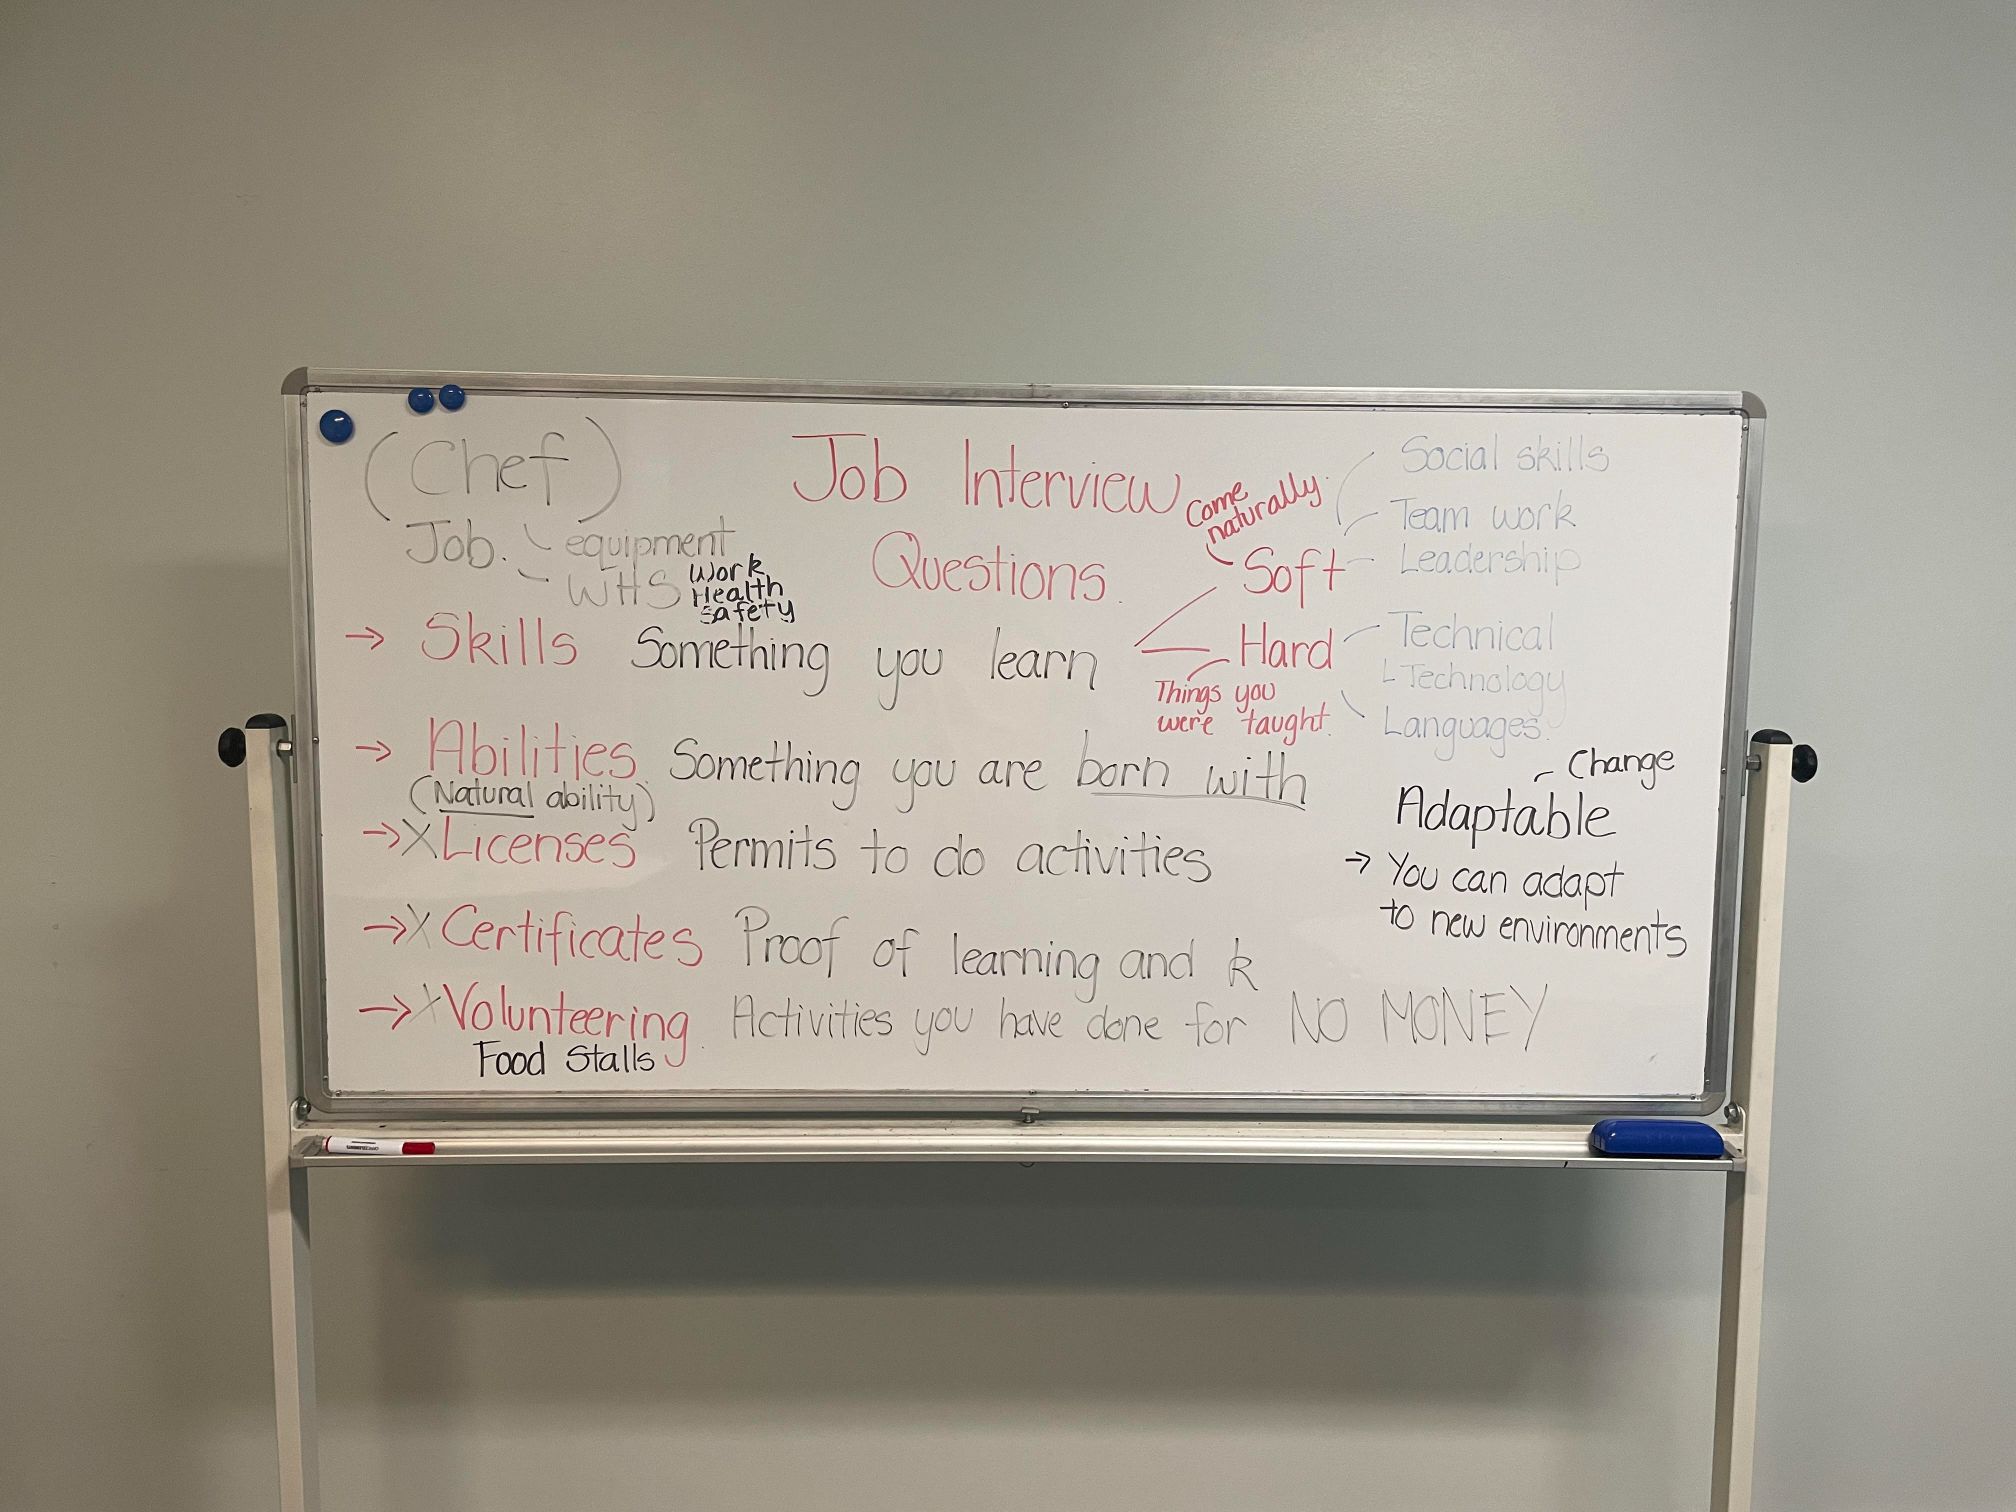 (Chef)
Job Interview
Questions.
Job. equipment
WHS Work
Health
Safety
→ Skills Something you learn
Come
naturally
Soft
Social skills
Team work
Leadership
Hard
Things you
were taught.
Technical
Technology
Languages.
→ Abilities. Something you are born with
(Natural ability)
→X Licenses Permits to do activities
→X Certificates Proof of learning and k
→X Volunteering. Activities you have done for NO MONEY
Food Stalls
Change
Adaptable
→ You can adapt
to new environments